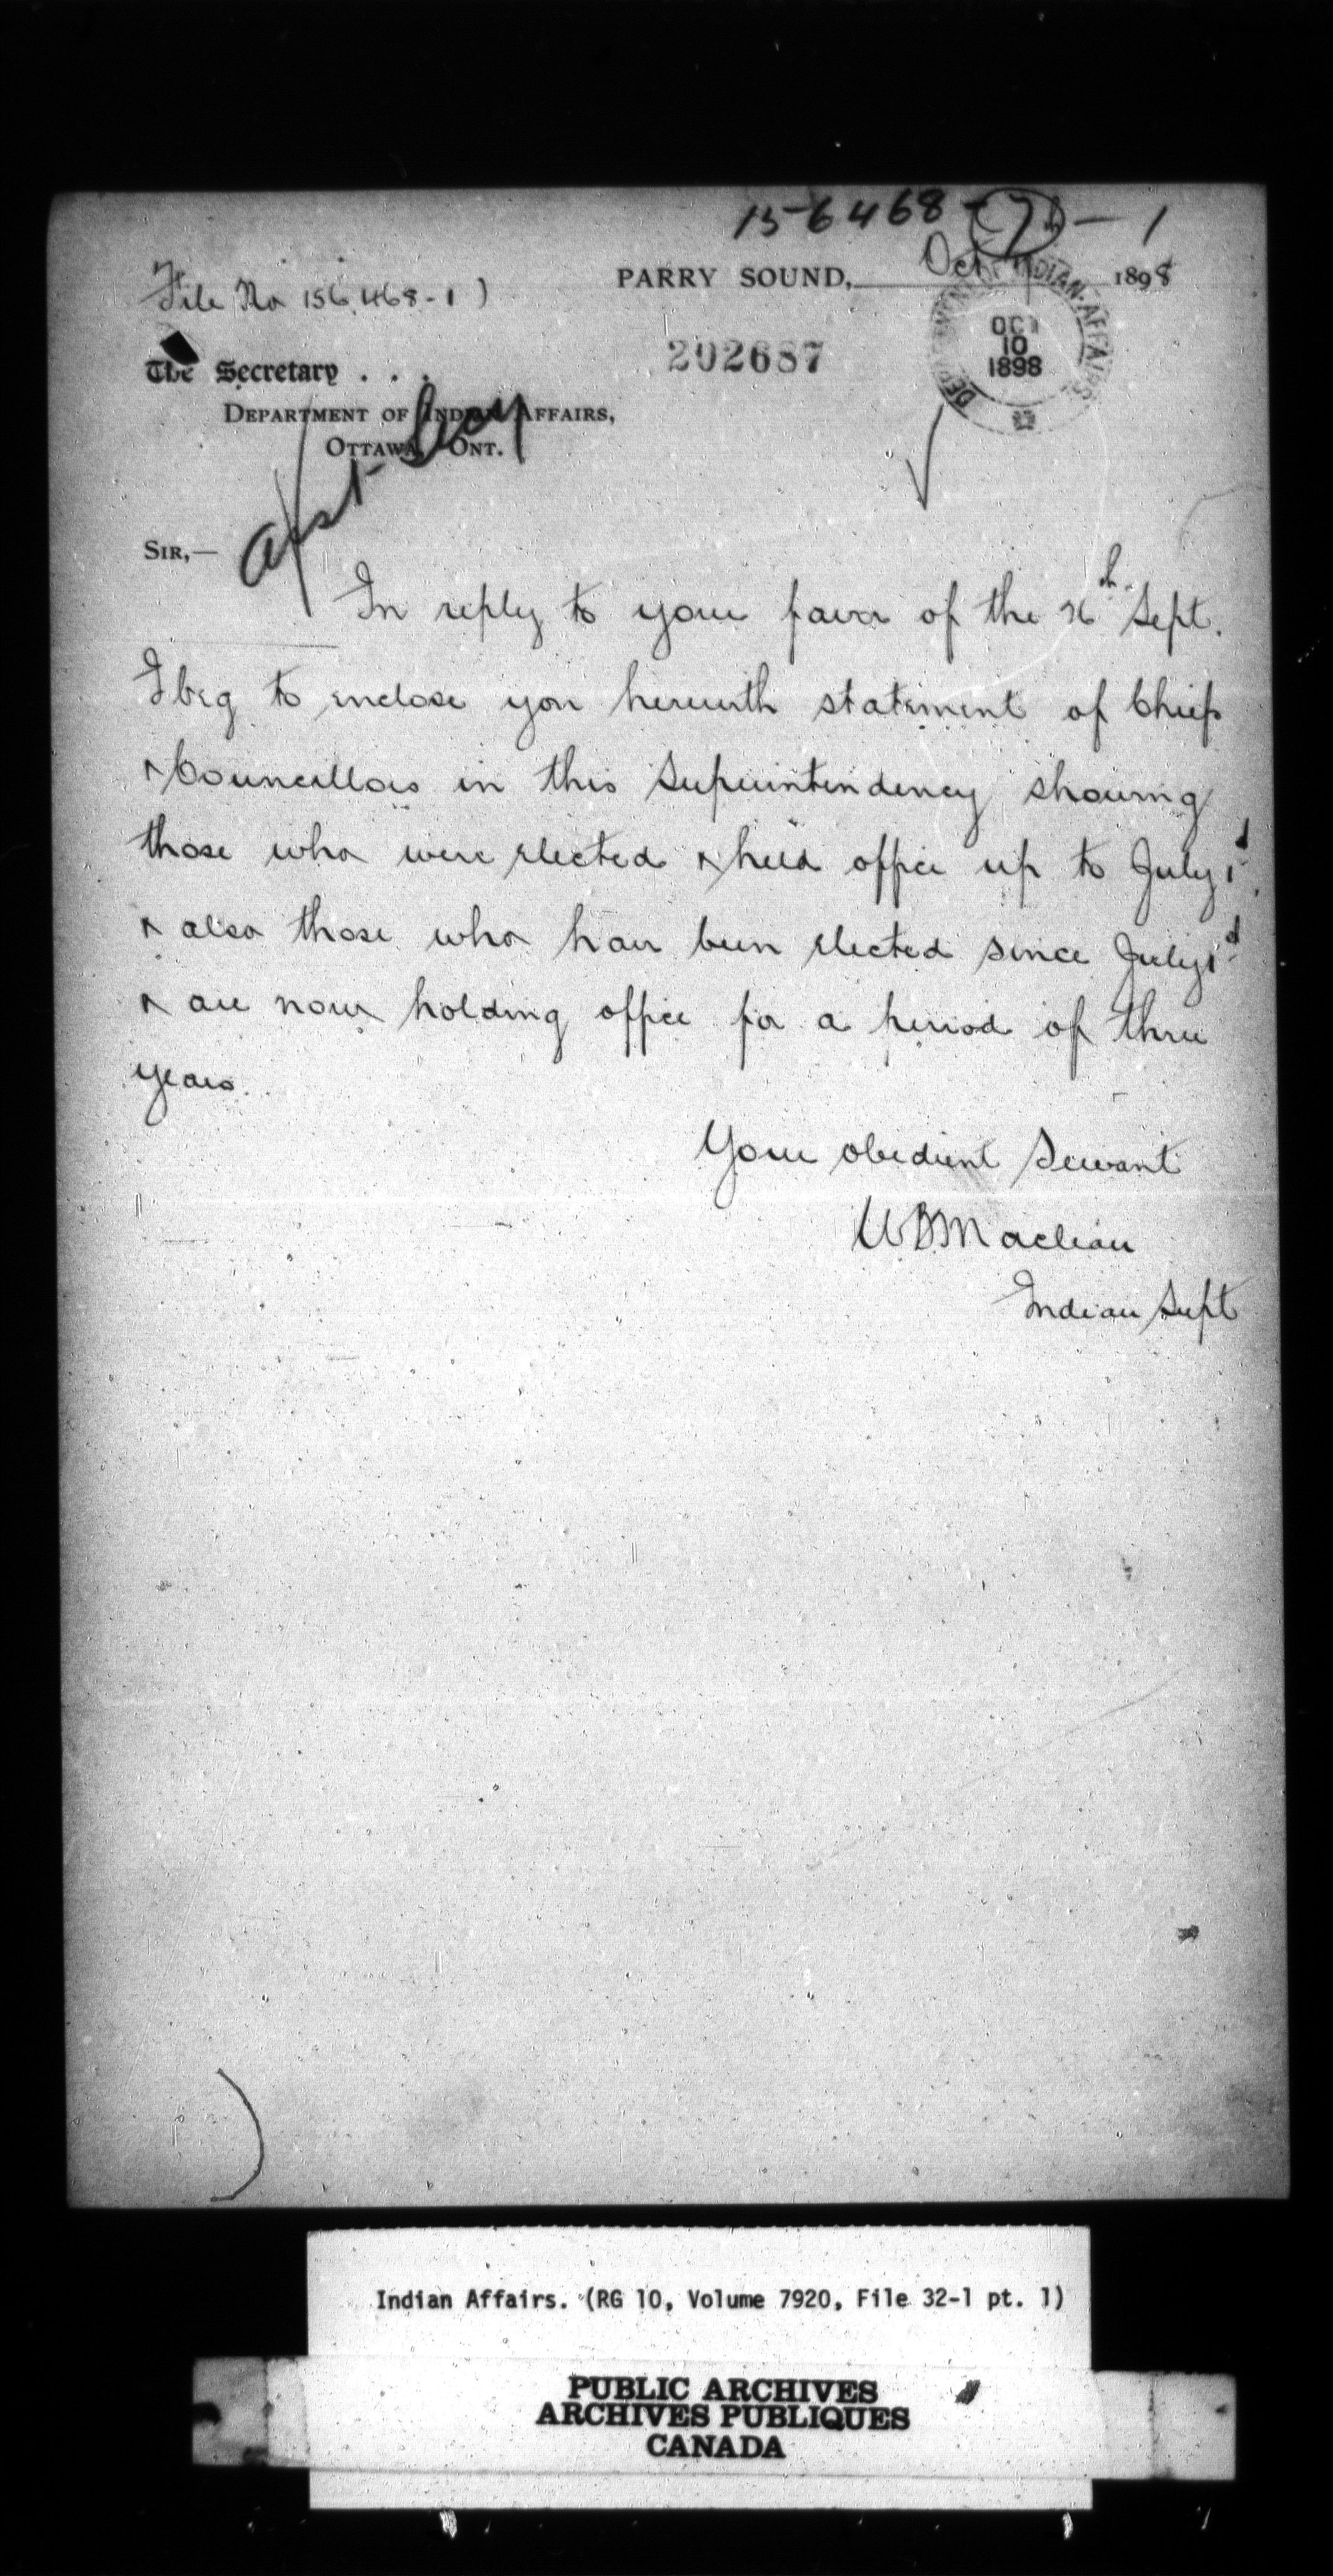 156468-7-1
PARRY SOUND, Oct 7th 1898
File No 156.468-1)
DEPARTMENT OF INDIAN AFFAIRS
OCT
10
1898
202687
The Secretary . . .
DEPARTMENT OF INDIAN AFFAIRS,
OTTAWA, ONT.
SIR,—
In reply to your favor of the 26th Sept.
I beg to enclose you herewith statement of Chiefs
& Councillors in this Superintendency showing
those who were elected & held office up to July 1st,
& also those who have been elected since July 1st
& are now holding office for a period of three
years.
Your obedient Servant
WBMaclean
Indian Supt
Indian Affairs. (RG 10, Volume 7920, File 32-1 pt. 1)
PUBLIC ARCHIVES
ARCHIVES PUBLIQUES
CANADA